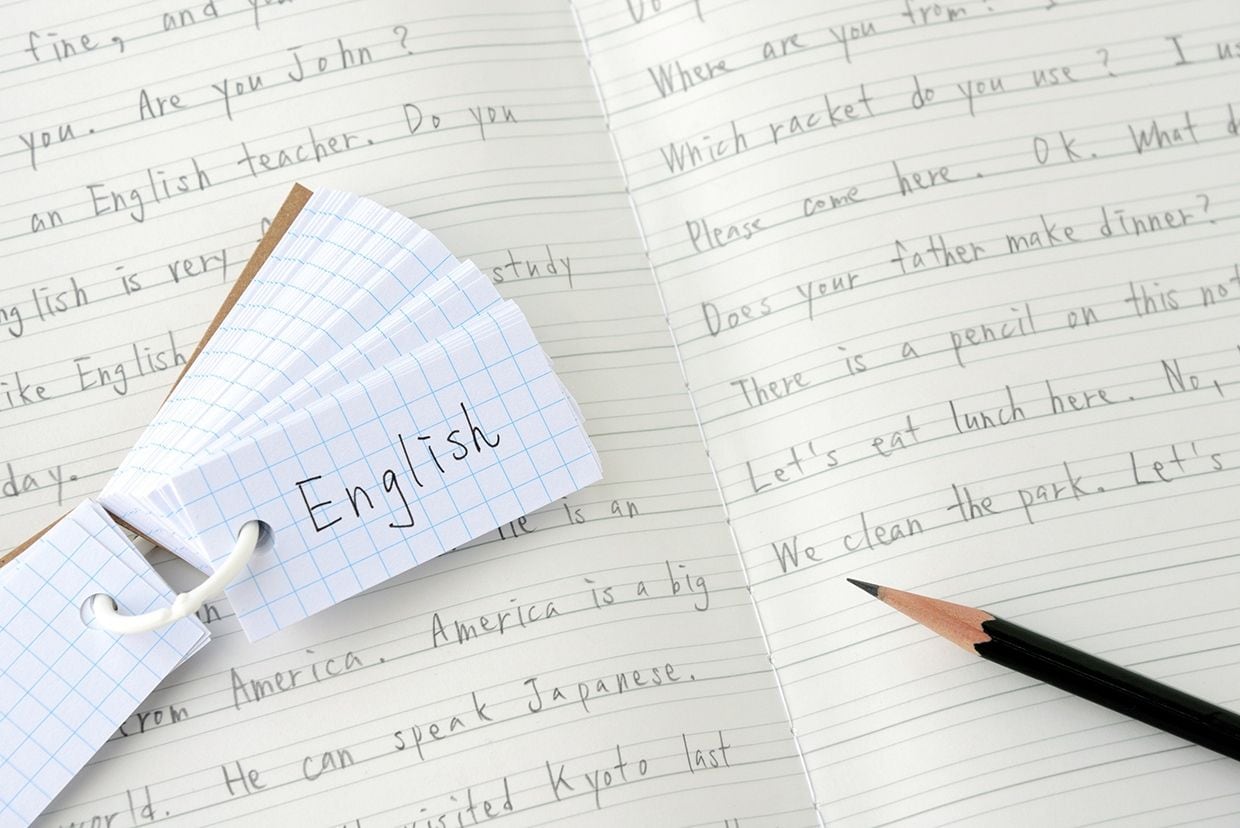 fine, and you
you. Are you John?
an English teacher. Do you
English is very
study
like English
day.
He is an
from America. America is a big
world. He can speak Japanese.
visited Kyoto last
English
Do
Where are you from?
Which racket do you use? I
Please come here. Ok. What
Does your father make dinner?
There is a pencil on this
Let's eat lunch here. No,
We clean the park. Let's